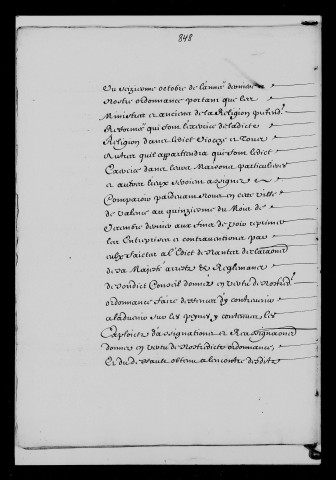 848
Du seiziesme octobre de l'année derniere
Nostre ordonnance portant que les
Ministres et anciens de la Religion pretend.
Reformée qui font l'exercice de ladicte
Religion dans ledict Diocese et Tous
autres qu'il appartiendra qui font ledict
Exercice dans leurs Maisons particulieres
et autres lieux seroient assignez
Comparoir pardevant Nous en ceste ville
de Valence au quinziesme du Mois de
Decembre dernier aux fins de voir reprimer
les Entreprises et contraventions par
eulx faictes à l'Edict de Nantes declarations
de sa Majesté arrests & Reglemens
de son dict Conseil donnés en vertu de Nostred.
ordonnance faire deffences d'y contrevenir
à l'advenir sur les peines y contenues les
Exploicts d'assignations et Reassignations
donnés en vertu de Nostredicte ordonnance,
Et du deffaute obtenu à l'encontre desdits